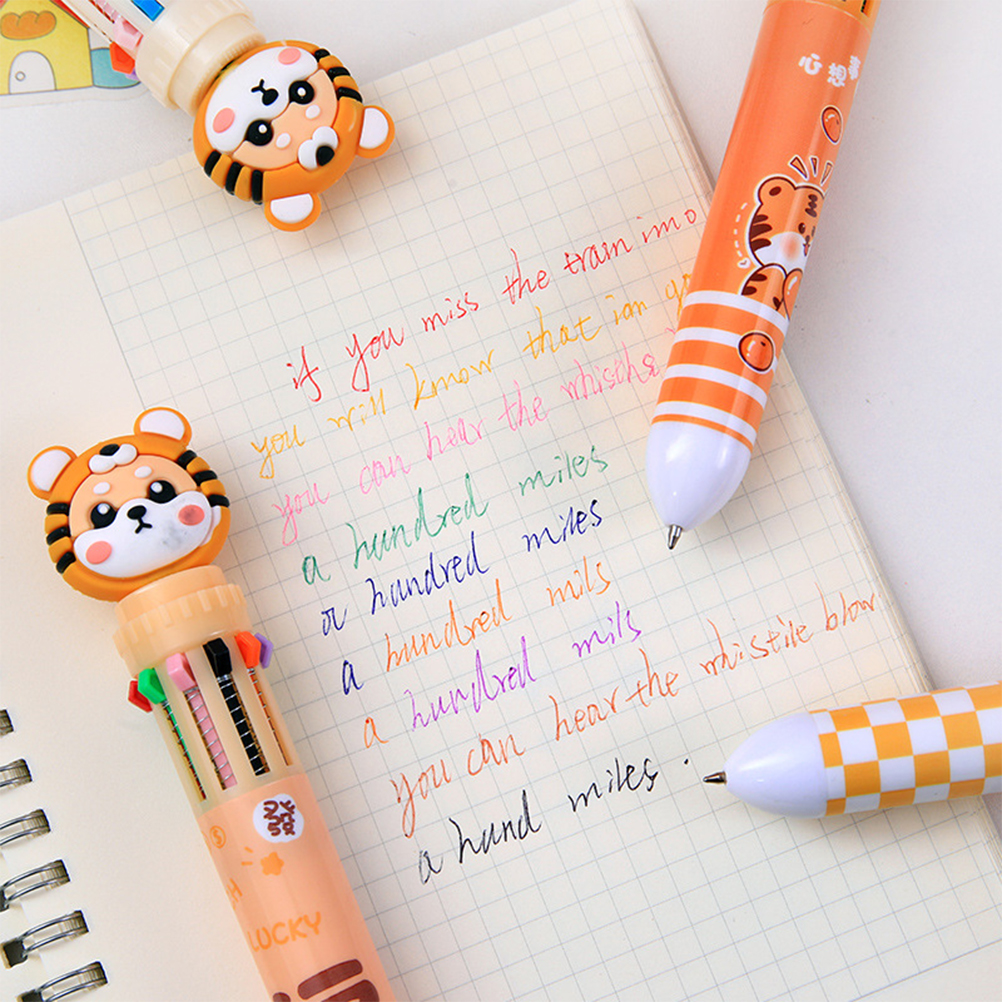 心想
if you miss the train imo
you will know that iam
you can hear the whisths
a hundred miles
a hundred miles
a hundred mils
a hundred mils
you can hear the whistile blow
a hund miles .
LUCKY